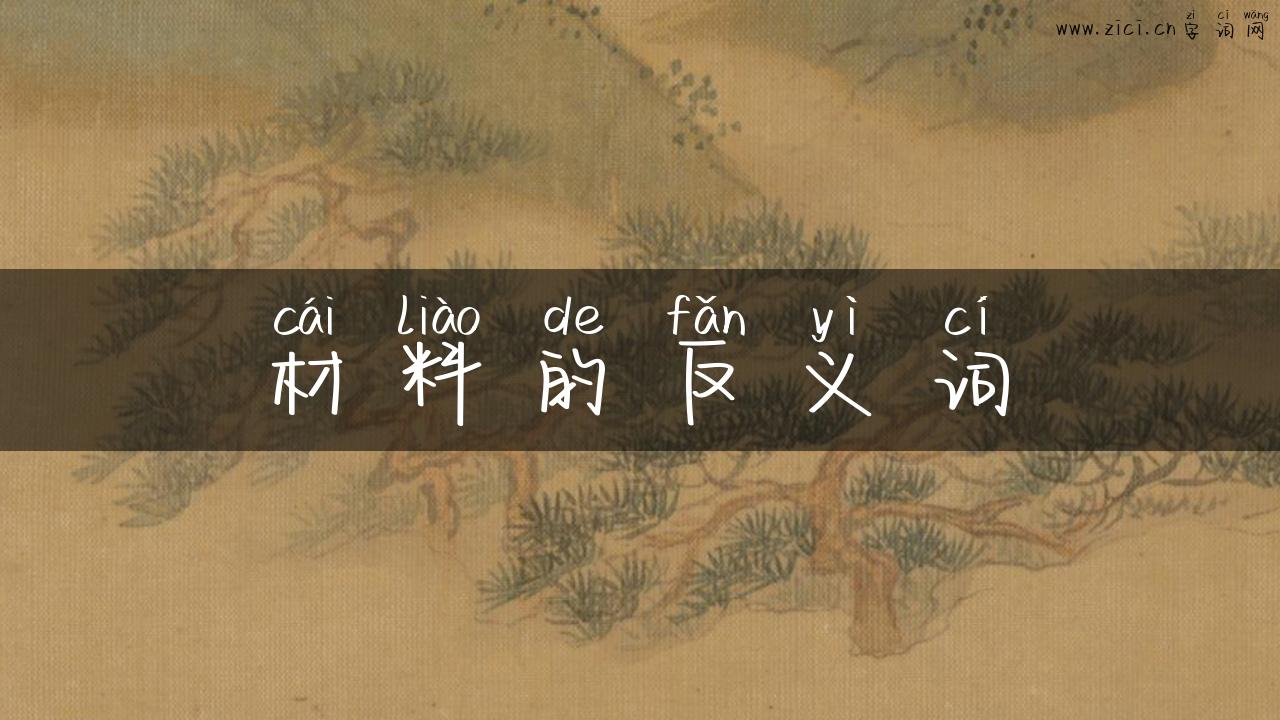 zì cí wǎng
www.zici.cn 字词网
cái liào de fǎn yì cí
材料的反义词